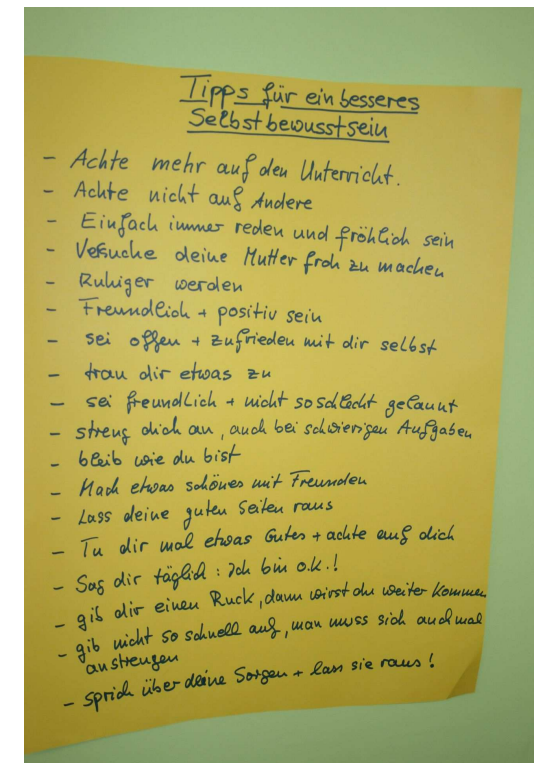 Tipps für ein besseres
Selbstbewusstsein
- Achte mehr auf den Unterricht.
- Achte nicht auf Andere
- Einfach immer reden und fröhlich sein
- Vesuche deine Mutter froh zu machen
- Ruhiger werden
- Freundlich + positiv sein
- sei offen + zufrieden mit dir selbst
- trau dir etwas zu
- sei freundlich + nicht so schlecht gelaunt
- streng dich an, auch bei schwierigen Aufgaben
- bleib wie du bist
- Mach etwas schönes mit Freunden
- Lass deine guten Seiten raus
- Tu dir mal etwas Gutes + achte auf dich
- Sag dir täglich: Ich bin o.k.!
- gib dir einen Ruck, dann wirst du weiter kommen
- gib nicht so schnell auf, man muss sich auch mal
anstrengen
- sprich über deine Sorgen + lass sie raus!